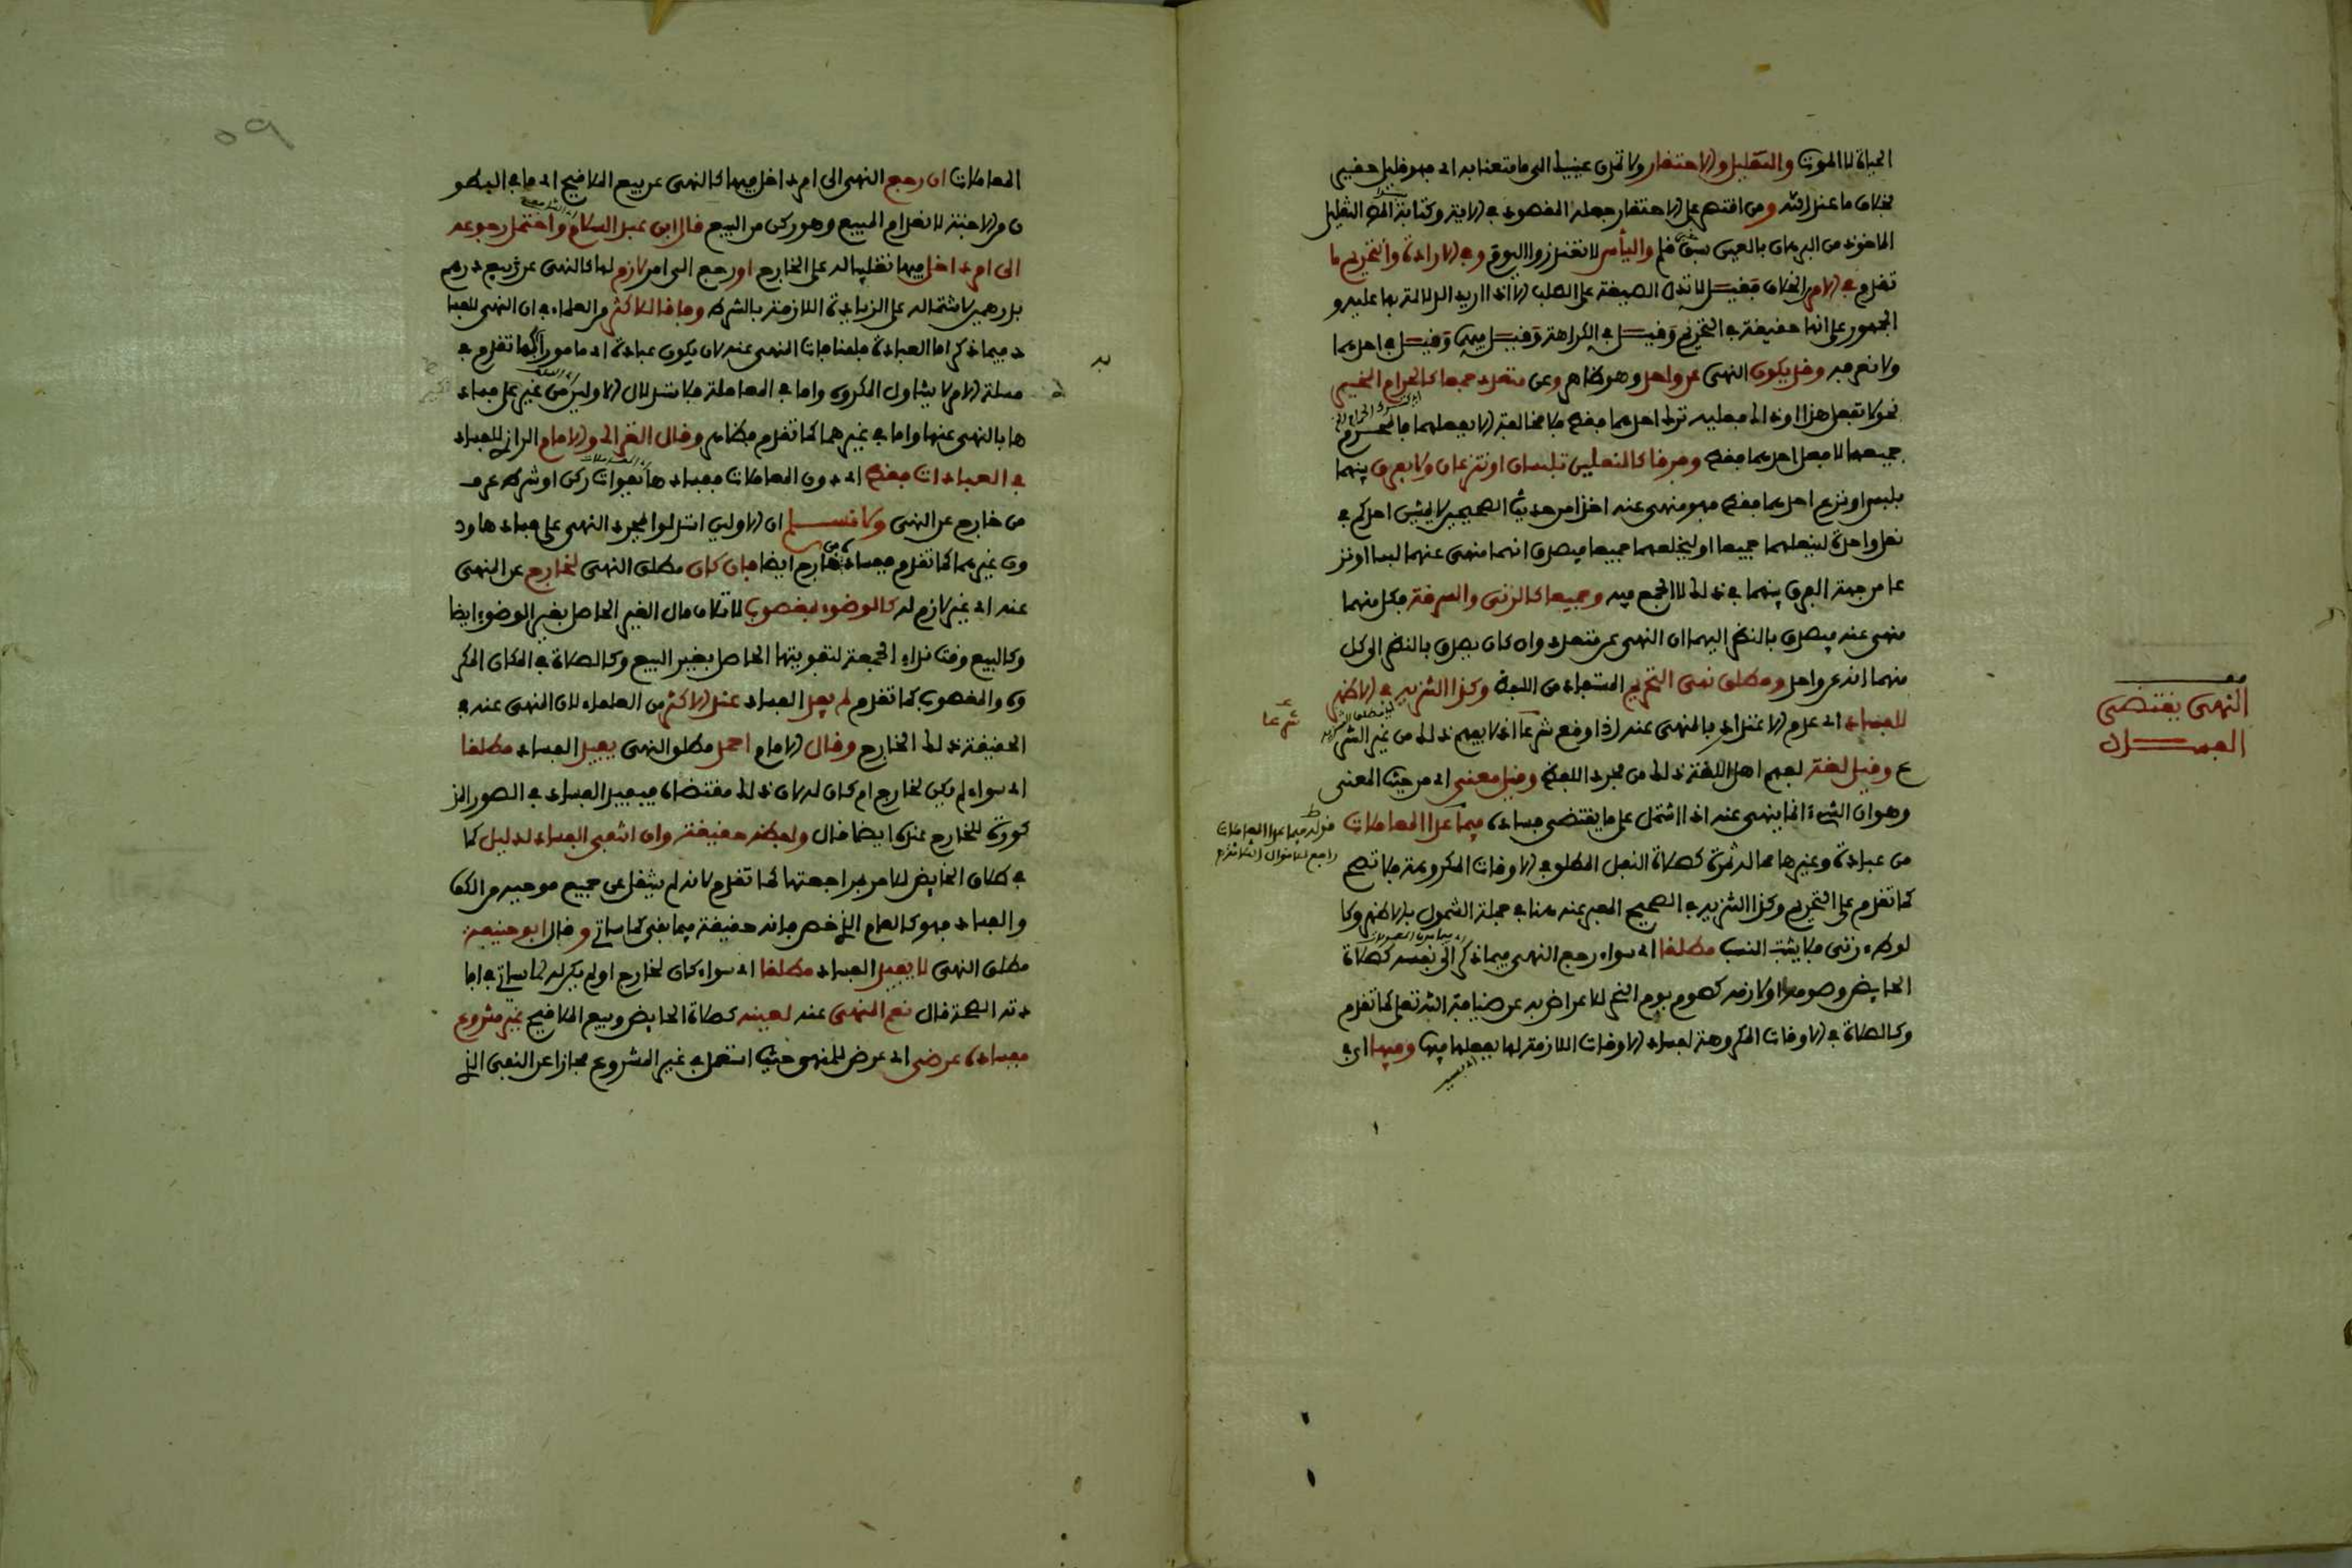 الحياة لا الموت والتقليل والاحتقار ولا تمدن عينيك الى ما متعنا به اي فهو قليل حقير
بخلاف ما عند الله ومن اقتصر على الاحتقار جعله المقصود في الاية وكتابة التقليل
الماخوذ من البرهان بالعين سبق قلم والياس لا تعتذروا اليوم وفي الارادة والتحريم ما
تقدم في الامر من الخلاف فقيل لا تدل الصيغة على الطلب الا اذا اريد الدلالة بها عليه و
الجمهور على انها حقيقة في التحريم وقيل في الكراهة وقيل فيهما وقيل في احدهما
ولا نعرفه وقد يكون النهي عن واحد وهو ظاهر وعن متعدد جمعا كالحرام المخير
نحو لا تفعل هذا او ذاك فعليه ترك احدهما فقط فلا مخالفة الا بفعلهما فالمحرم
جمعهما لا فعل احدهما فقط وفرقا كالنعلين تلبسان او تنزعان ولا يفرق بينهما
بلبس او نزع احدهما فقط فهو منهي عنه اخذا من حديث الصحيحين لا يمشين احدكم في
نعل واحدة لينعلهما جميعا او ليخلعهما جميعا فيصدق انهما منهي عنهما لبسا او نز
عا من جهة الفرق بينهما في ذلك لا الجمع فيه وجميعا كالزنى والسرقة فكل منهما
منهي عنه فيصدق بالنظر اليهما ان النهي عن متعدد وان كان يصدق بالنظر الى كل
منهما انه عن واحد ومطلق نهي التحريم المستفاد من اللفظ وكذا التنزيه في الاظهر
شرعا
للفساد اي عدم الاعتداد بالمنهي عنه اذا وقع شرعا اذ لا يفهم ذلك من غير الشر
ع وقيل لغة لفهم اهل اللغة ذلك من مجرد اللفظ وقيل معنى اي من حيث المعنى
النهي يقتضي
الفساد
وهو ان الشيء انما ينهى عنه اذا اشتمل على ما يقتضي فساده فيما عدا المعاملات
قوله فيما عدا المعاملات
راجع للاقوال الثلاثة
من عبادة وغيرها مما له ثمرة كصلاة النفل المطلق في الاوقات المكروهة فلا تصح
كما تقدم على التحريم وكذا التنزيه في الصحيح المعبر عنه هنا في جملة الشمول بالاظهر وكا
لوطء زنى فلا يثبت النسب مطلقا اي سواء رجع النهي فيما ذكر الى نفسه كصلاة
الحايض وصومها او لازمه كصوم يوم النحر للاعراض به عن ضيافة الله تعلى كما تقدم
وكالصلاة في الاوقات المكروهة لفساد الاوقات اللازمة لها بفعلها فيها وفيها اي في
٥٩
المعاملات ان رجع النهي الى امر داخل فيها كالنهي عن بيع الملاقيح اي ما في البطو
ن من الاجنة لانعدام المبيع وهو ركن من البيع قال ابن عبد السلام واحتمل رجوعه
الى امر داخل فيها تغليبا له على الخارج او رجع الى امر لازم لها كالنهي عن بيع درهم
بدرهمين لاشتماله على الزيادة اللازمة بالشرط وفاقا للاكثر من العلماء في ان النهي للفسا
د فيما ذكر اما العبادة فلمنافاة المنهي عنه لان يكون عبادة اي مامورا بها كما تقدم في
مسئلة الامر لا يتناول المكروه واما في المعاملة فلاستدلال الاولين من غير نكير على فساد
ها بالنهي عنها واما في غيرهما كما تقدم فظاهر وقال الغزالي والامام الرازي للفساد
في العبادات فقط اي دون المعاملات ففسادها بفوات ركن او شرط عرف
من خارج عن النهي ولا نسلم ان الاولين استدلوا بمجرد النهي على فسادها ود
ون غيرهما كما تقدم ففساده من خارج ايضا فان كان مطلق النهي لخارج عن المنهي
عنه اي غير لازم له كالوضوء بمغصوب لاتلاف مال الغير الحاصل بغير الوضوء ايضا
وكالبيع وقت نداء الجمعة لتفويتها الحاصل بغير البيع وكالصلاة في المكان المكر
وه والمغصوب كما تقدم لم يفد الفساد عند الاكثر من العلماء لان المنهي عنه في
الحقيقة ذلك الخارج وقال الامام احمد مطلق النهي يفيد الفساد مطلقا
اي سواء لم يكن لخارج ام كان له لان ذلك مقتضاه فيفيد الفساد في الصور المذ
كورة للخارج عنده ايضا قال ولفظه حقيقة وان انتفى الفساد لدليل كما
في طلاق الحايض للامر بمراجعتها كما تقدم لانه لم ينتقل عن جميع موجبه من الكف
والفساد فهو كالعام الذي خص فانه حقيقة فيما بقي كما سياتي وقال ابو حنيفة
مطلق النهي لا يفيد الفساد مطلقا اي سواء كان لخارج او لم يكن له لما سياتي في افا
دته الصحة قال نعم المنهي عنه لعينه كصلاة الحايض وبيع الملاقيح غير مشروع
ففساده عرضي اي عرض للنهي حيث استعمل في غير المشروع مجازا عن النفي الذي